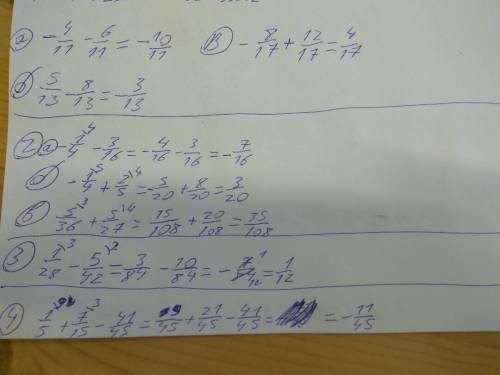 а) -4/11 - 6/11 = -10/11 В) -8/17 + 12/17 = 4/17
б) 5/13 - 8/13 = -3/13
2) а) -1/4 \4 - 3/16 = -4/16 - 3/16 = -7/16
б) -1/4 \5 + 2/5 \4 = -5/20 + 8/20 = 3/20
в) 5/36 \3 + 5/27 \4 = 15/108 + 20/108 = 35/108
3) 1/28 \3 - 5/42 \2 = 3/84 - 10/84 = -7/84 1/12 = 1/12
4) 1/5 + 7/15 \3 - 41/45 = 9/45 + 21/45 - 41/45 = = -11/45